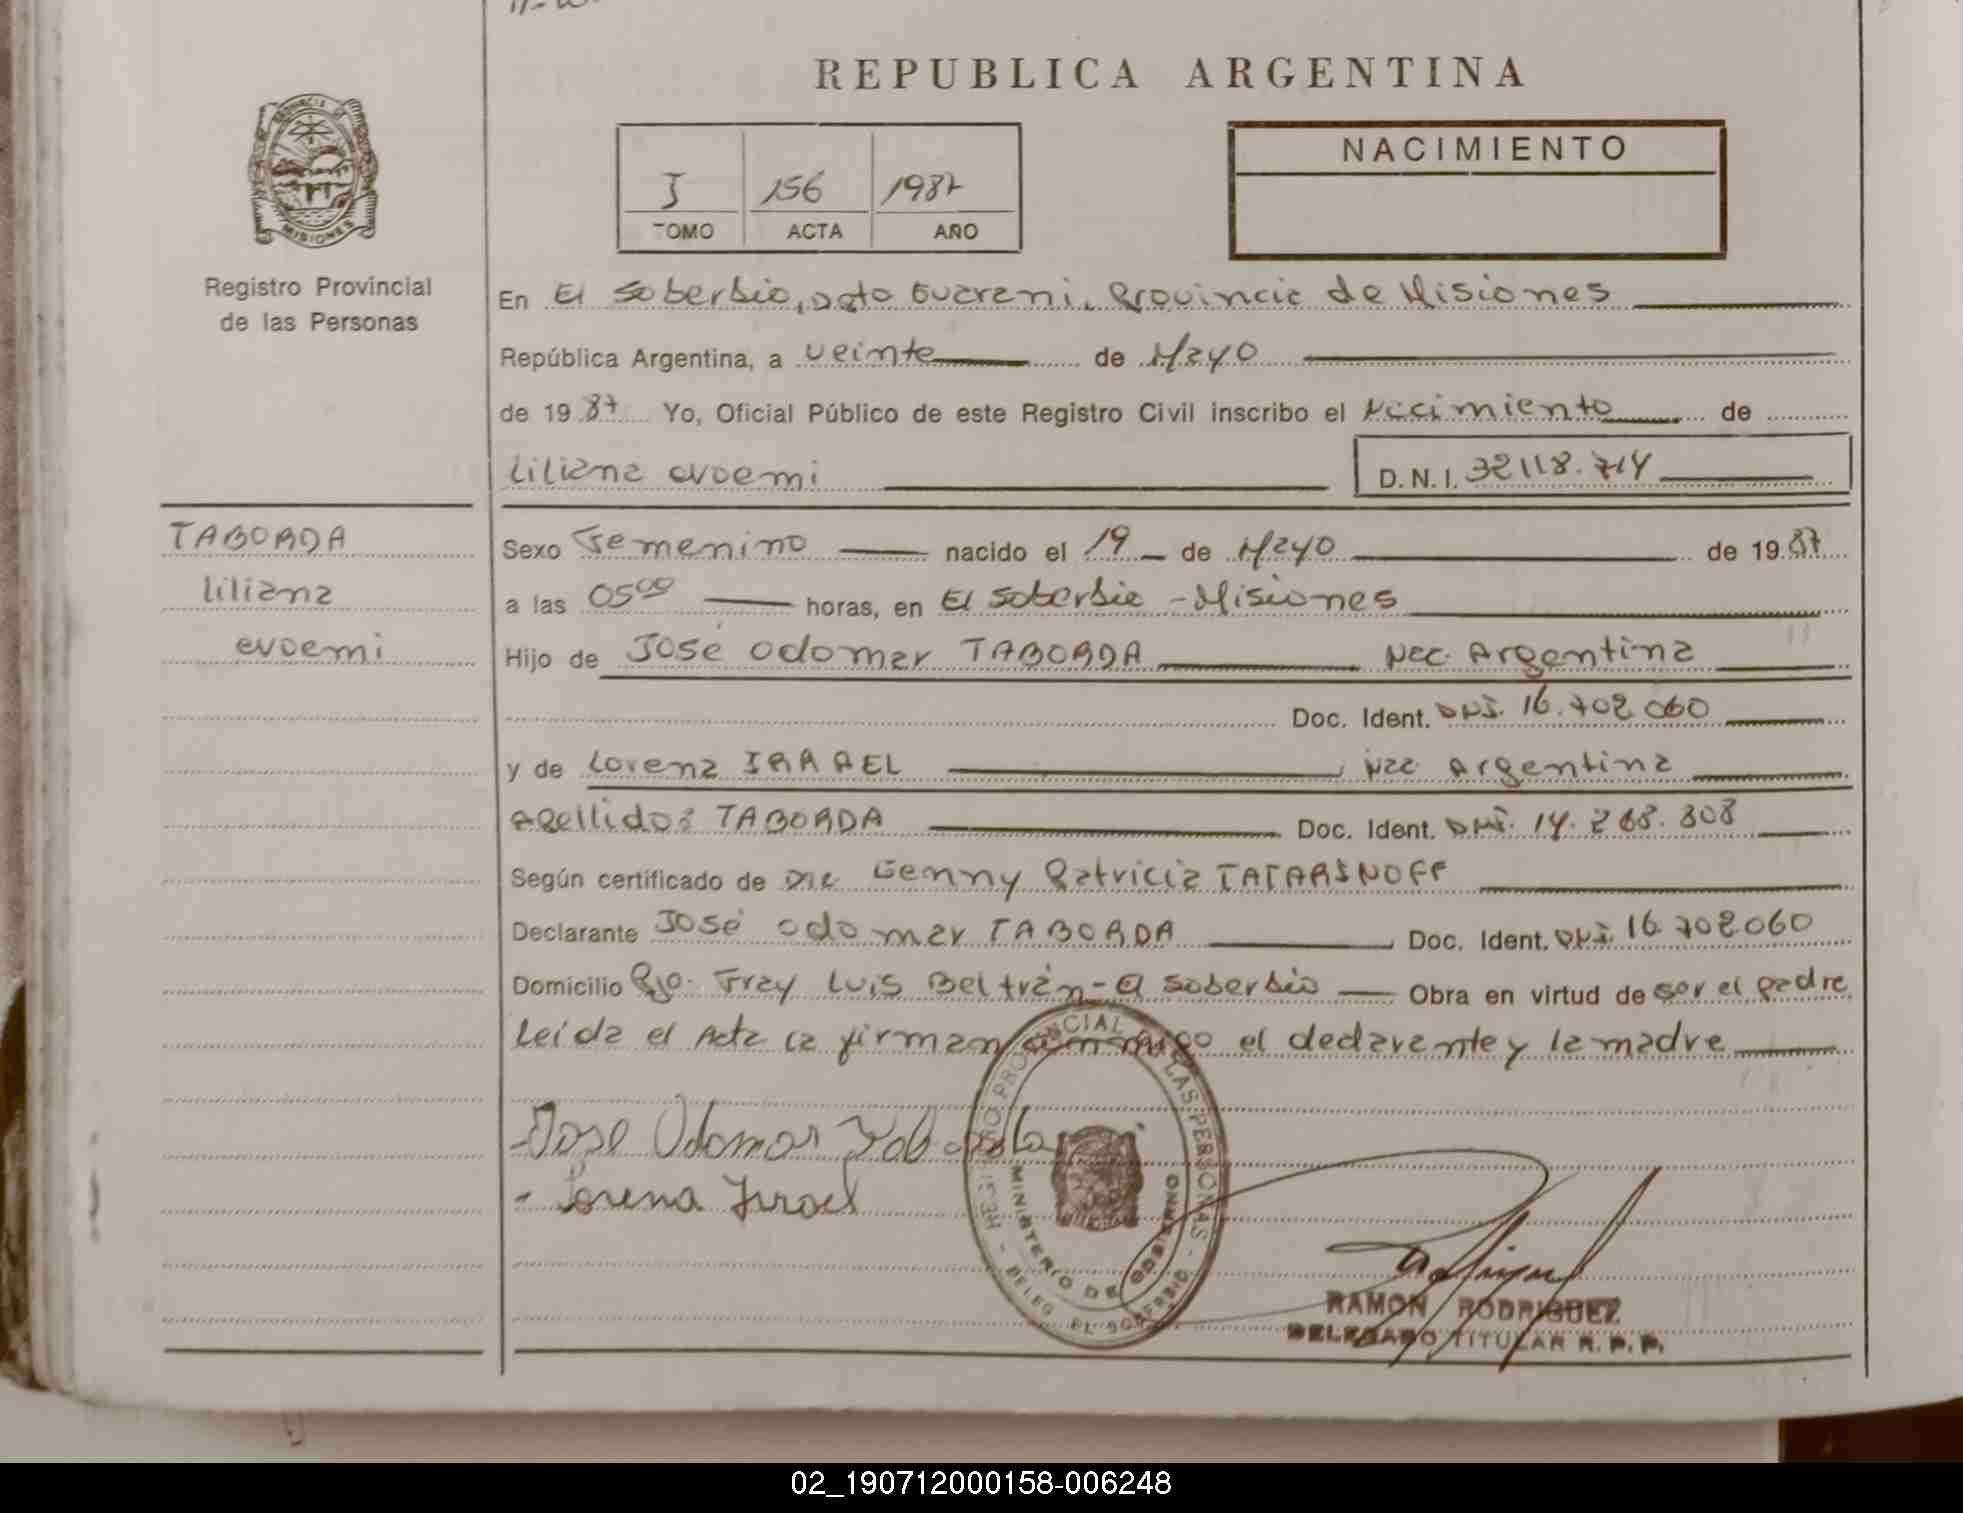 REPUBLICA ARGENTINA
PROVINCIA DE
MISIONES
Registro Provincial
de las Personas
I 156 1987
TOMO ACTA AÑO
NACIMIENTO
En El Soberbio, Dpto Guarani, Provincia de Misiones
República Argentina, a veinte de Mayo
de 1987 Yo, Oficial Público de este Registro Civil inscribo el Nacimiento de
Liliana evoemi D.N.I. 32118.714
TABORDA
liliana
evoemi
Sexo Femenino nacido el 19 de Mayo de 1987
a las 05⁰⁰ horas, en El Soberbio - Misiones
Hijo de José Odomar TABORDA Nac. Argentina
Doc. Ident. DNI. 16.702.060
y de Lorena ISRAEL Nac Argentina
Apellido: TABORDA Doc. Ident. DNI. 14.268.308
Según certificado de Dra Genny Patricia TATARINOFF
Declarante José Odomar TABORDA Doc. Ident. DNI 16.702.060
Domicilio Bjo. Fray Luis Beltrán - El Soberbio Obra en virtud de ser el padre
Leida el Acta la firman conmigo el declarante y la madre
- Jose Odomar Taborda
- Lorena Israel
REGISTRO PROVINCIAL DE LAS PERSONAS - DELEG EL SOBERBIO
MINISTERIO DE GOBIERNO
RAMON RODRIGUEZ
DELEGADO TITULAR R. P. P.
02_190712000158-006248